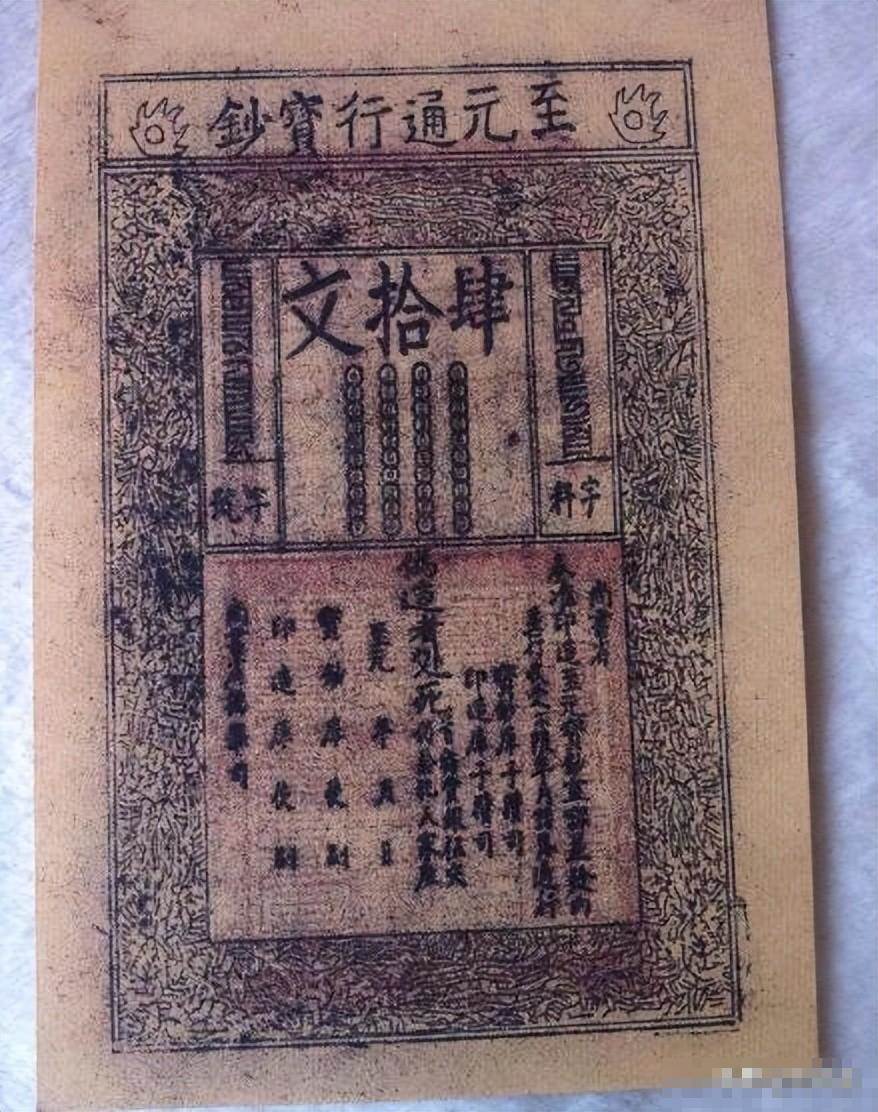 至元通行寶鈔
肆拾文
字料
字號
尚書省
奏准印造至元寶鈔宣課差役內
並行收受不限年月諸路通行
寶鈔庫子攢司
印造庫子攢司
偽造者處死
仍給犯人家產
至元 年 月 日
寶鈔庫使副
印造庫使副
尚書省提舉司